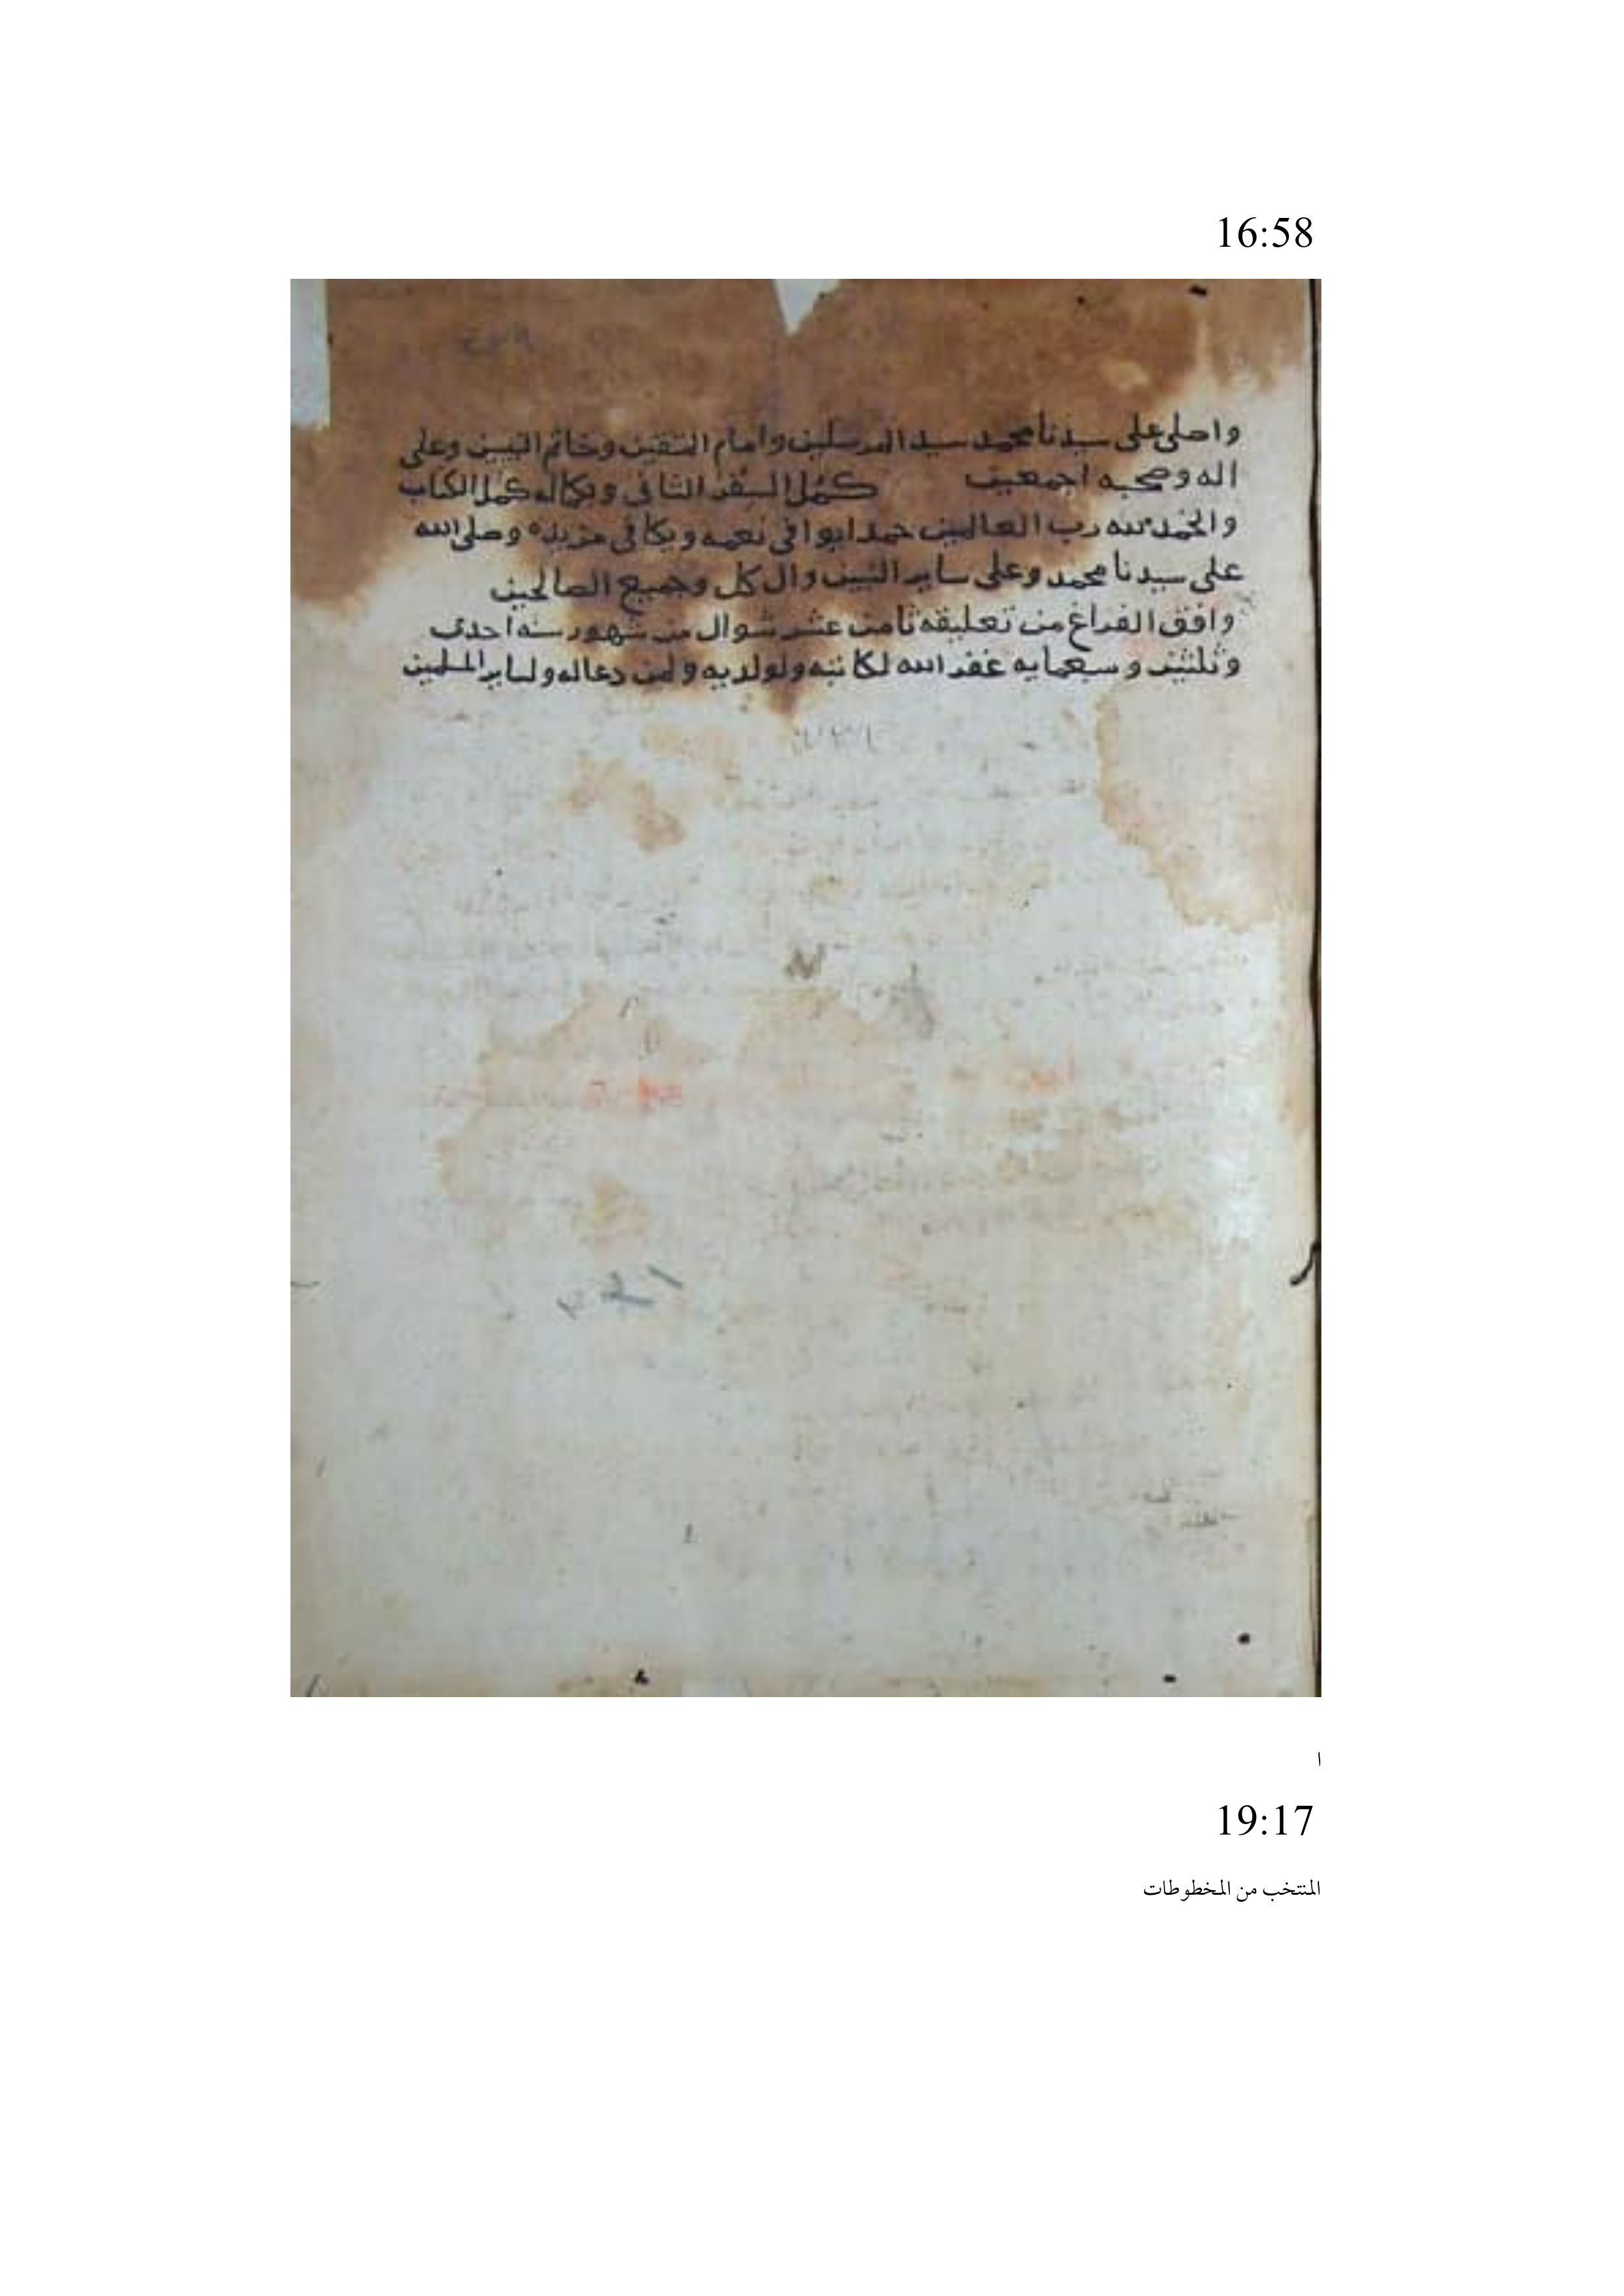 16:58
واصلى على سيدنا محمد سيد المرسلين وامام المتقين وخاتم النبيين وعلى
اله وصحبه اجمعين كمل السفر الثانى وبكماله كمل الكتاب
والحمد لله رب العالمين حمدا يوافى نعمه ويكافى مزيده وصلى الله
على سيدنا محمد وعلى ساير النبيين وال كل وجميع الصالحين
وافق الفراغ من تعليقه ثامن عشر شوال من شهور سنه احدى
وثلثين وسبعمايه غفر الله لكاتبه ولولديه ولمن دعا له ولساير المسلمين
ا
19:17
المنتخب من المخطوطات